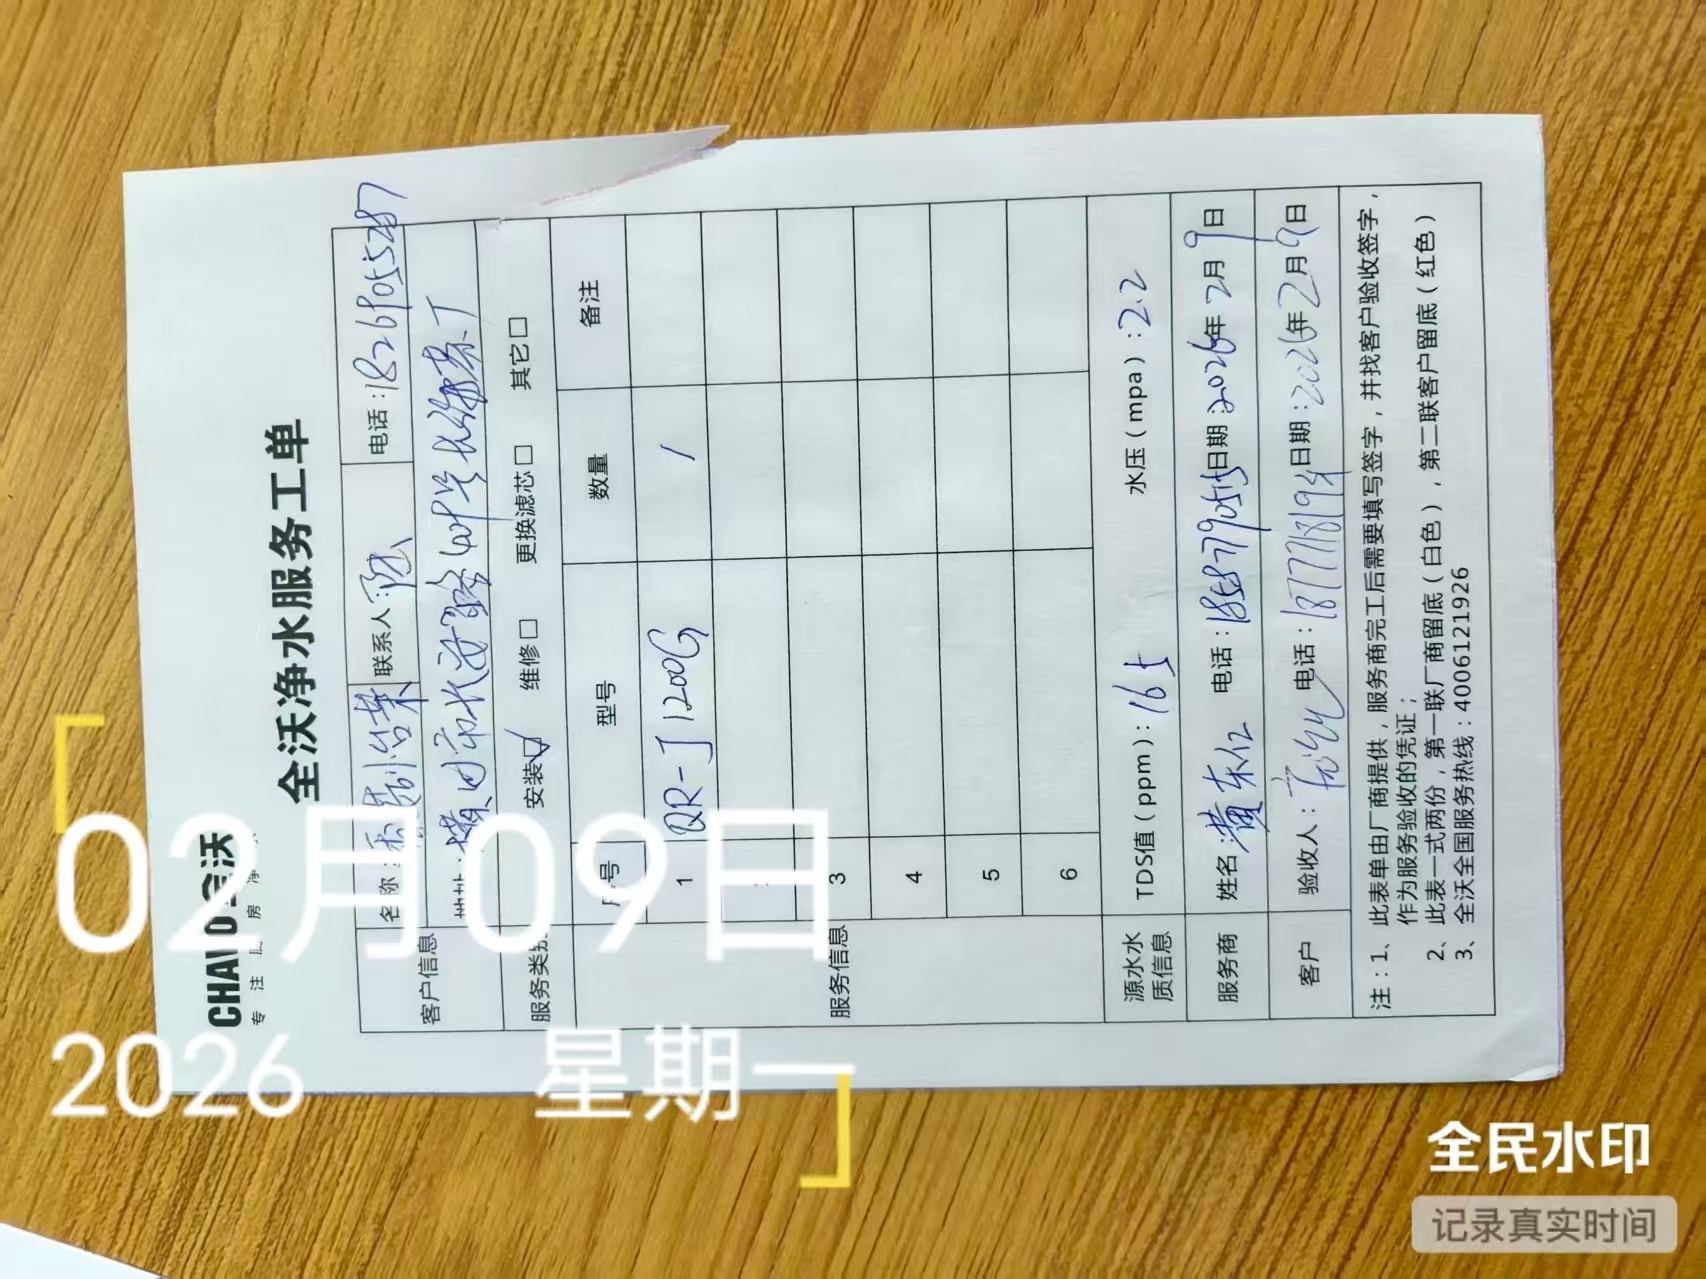 全沃
专注厨房净水
全沃净水服务工单
客户信息 名称: 联系人: 陈 电话:18269055287
地址:
服务类别 安装☑ 维修□ 更换滤芯□ 其它□
服务信息 序号 型号 数量 备注
1 QR-J1200G 1
3
4
5
6
源水水质信息 TDS值(ppm):165 水压(mpa):2.2
服务商 姓名:黄东 电话: 日期:2026年2月9日
客户 验收人: 电话: 日期:2026年2月9日
注:1、此表单由厂商提供,服务商完工后需要填写签字,并找客户验收签字,
作为服务验收的凭证;
2、此表一式两份,第一联厂商留底(白色),第二联客户留底(红色)
3、全沃全国服务热线:4006121926
02月09日
2026 星期一
全民水印
记录真实时间